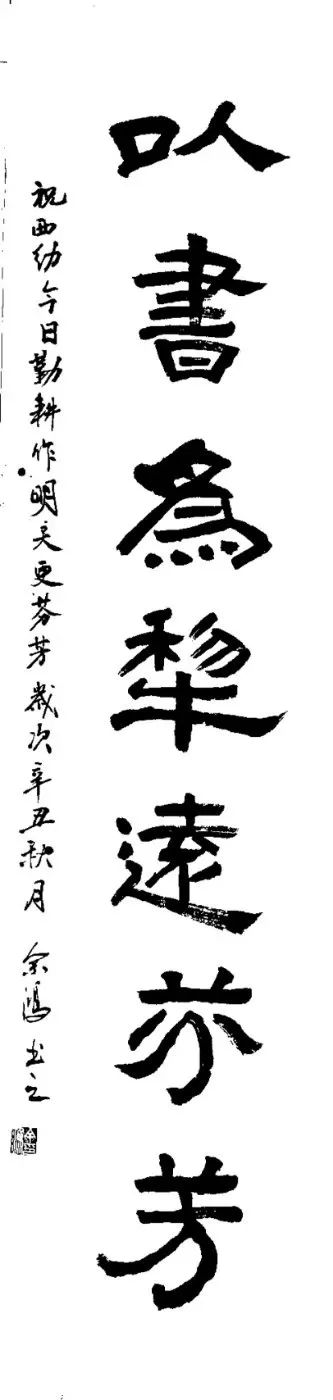 以書為犂遠亦芳
祝西幼今日勤耕作明天更芬芳歲次辛丑秋月 余鴻書之